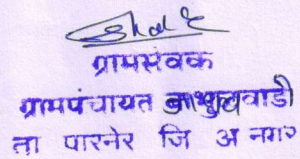 ग्रामसेवक
ग्रामपंचायत वाडी
ता पारनेर जि अ नगर